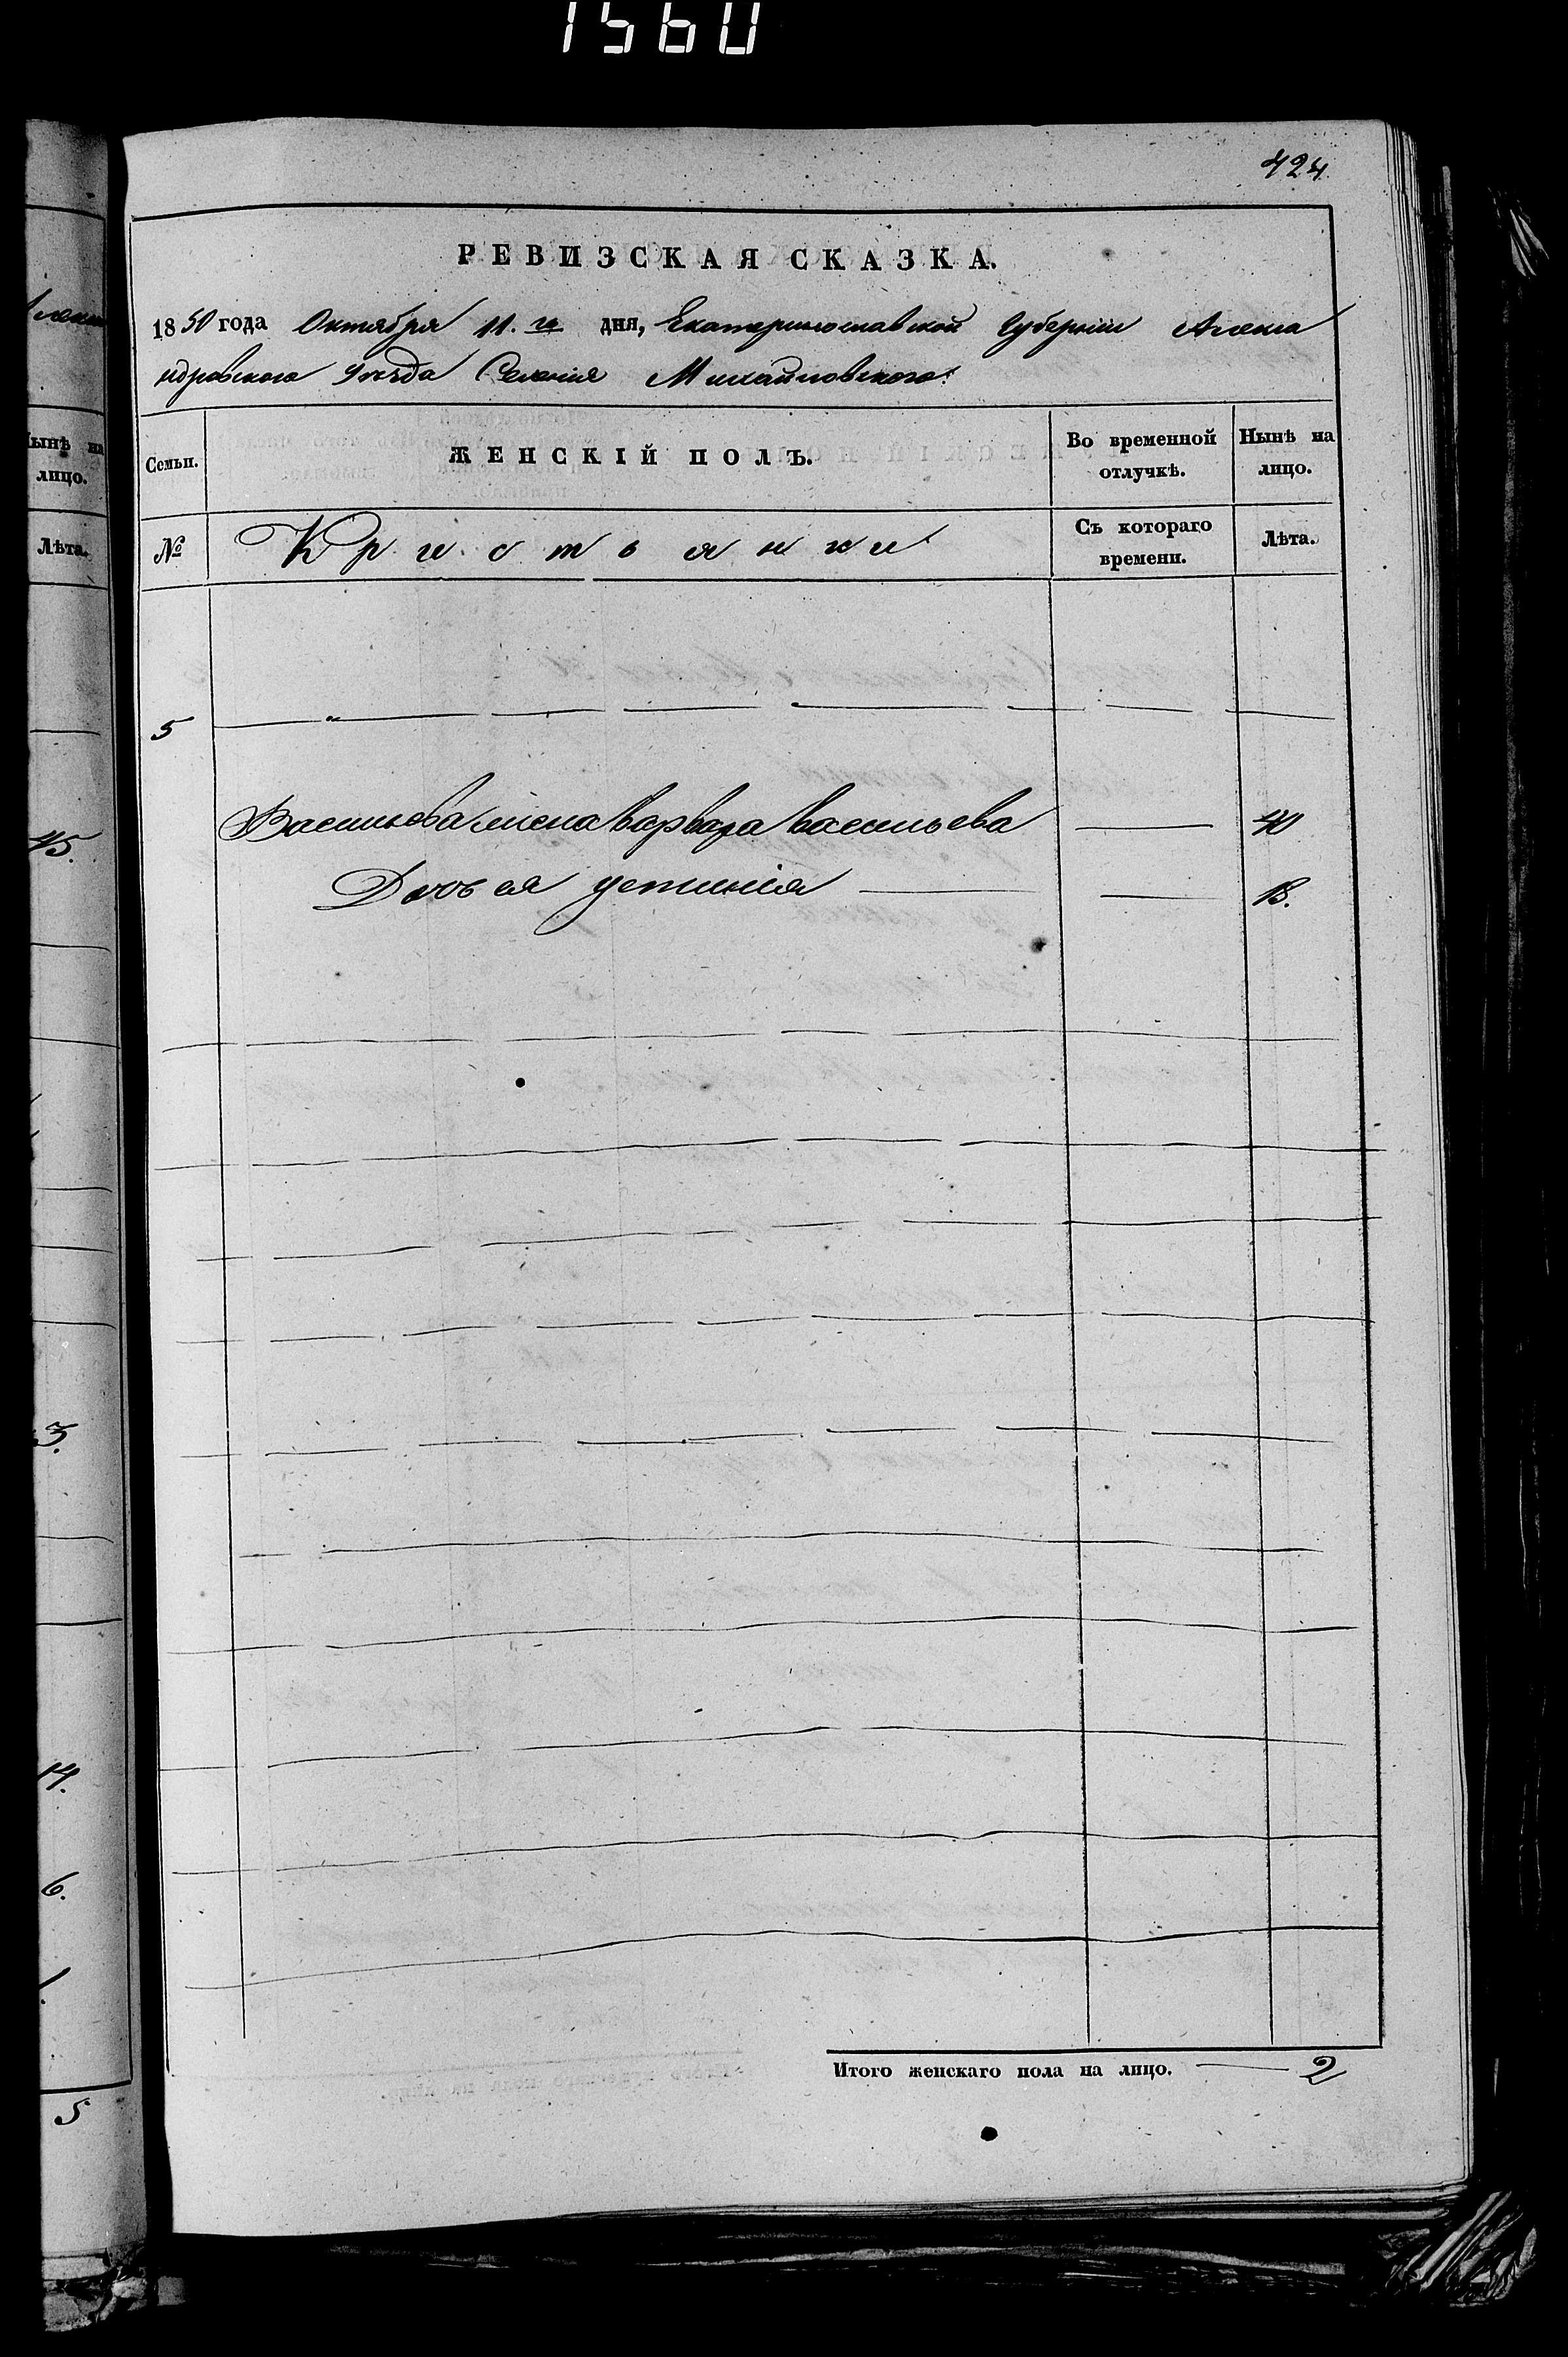 1560
424
РЕВИЗСКАЯ СКАЗКА.
1850 года Октября 11.го дня, Екатеринославской Губерніи Алекса
ндровского Уезда Селенія Михайловского:
Семьи. ЖЕНСКІЙ ПОЛЪ. Во временной отлучкѣ. Нынѣ на лицо.
№ Кристьянки Съ котораго времени. Лѣта.
5
Васильева жена Варвара Васильева — 40
Дочь ея Устинія — 13.
Итого женскаго пола на лицо. — 2
Нынѣ на
лицо.
Лѣта.
45.
3.
14.
6.
5